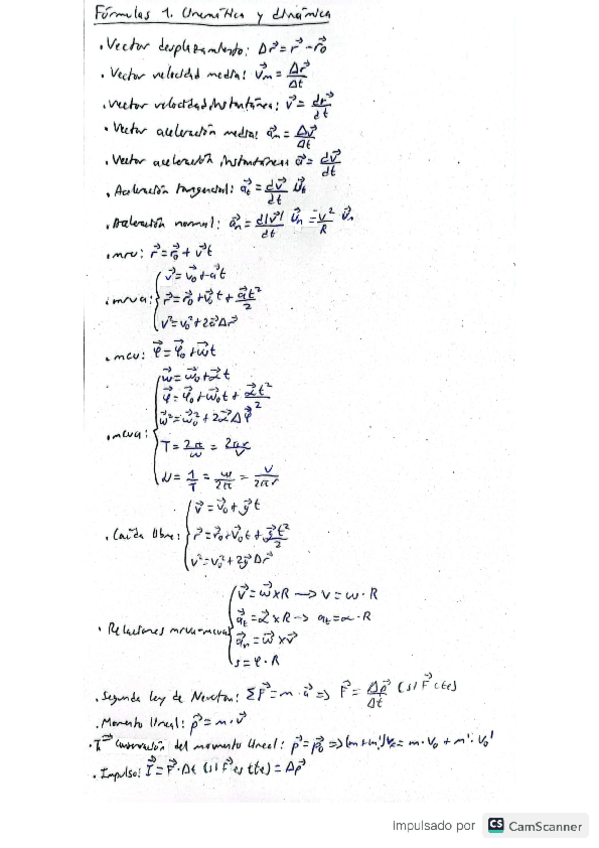 Fórmulas 1. Cinemática y dinámica
· Vector desplazamiento: Δr⃗ = r⃗ - r⃗₀
· Vector velocidad media: v⃗ₘ = Δr⃗/Δt
· Vector velocidad instantánea: v⃗ = dr⃗/dt
· Vector aceleración media: a⃗ₘ = Δv⃗/Δt
· Vector aceleración instantánea a⃗ = dv⃗/dt
· Aceleración tangencial: a⃗ₜ = dv⃗/dt u⃗ₜ
· Aceleración normal: a⃗ₙ = d|v⃗|/dt u⃗ₙ = v²/R u⃗ₙ
· mru: r⃗ = r⃗₀ + v⃗t
· mrua: { v⃗ = v⃗₀ + a⃗t
r⃗ = r⃗₀ + v⃗₀t + a⃗t²/2
v² = v₀² + 2a⃗Δr⃗
· mcu: φ⃗ = φ⃗₀ + ω⃗t
· mcua: { ω⃗ = ω⃗₀ + α⃗t
φ⃗ = φ⃗₀ + ω⃗₀t + α⃗t²/2
ω⃗² = ω⃗₀² + 2α⃗Δφ⃗
T = 2π/ω = 2πr/v
ν = 1/T = ω/2π = v/2πr
· Caída libre: { v⃗ = v⃗₀ + g⃗t
r⃗ = r⃗₀ + v⃗₀t + g⃗t²/2
v² = v₀² + 2g⃗Δr⃗
· Relaciones mrua-mcua { v⃗ = ω⃗ x R → v = ω · R
a⃗ₜ = α⃗ x R → aₜ = α · R
a⃗ₙ = ω⃗ x v⃗
s = φ · R
· Segunda ley de Newton: ΣF⃗ = m · a⃗ ⇒ F⃗ = Δp⃗/Δt (si F⃗ cte)
· Momento lineal: p⃗ = m · v⃗
· Conservación del momento lineal: p⃗ = p⃗₀ ⇒ (m + m') = m · v₀ + m' · v₀'
· Impulso: I⃗ = F⃗ · Δt (si F⃗ es cte) = Δp⃗
Impulsado por CS CamScanner